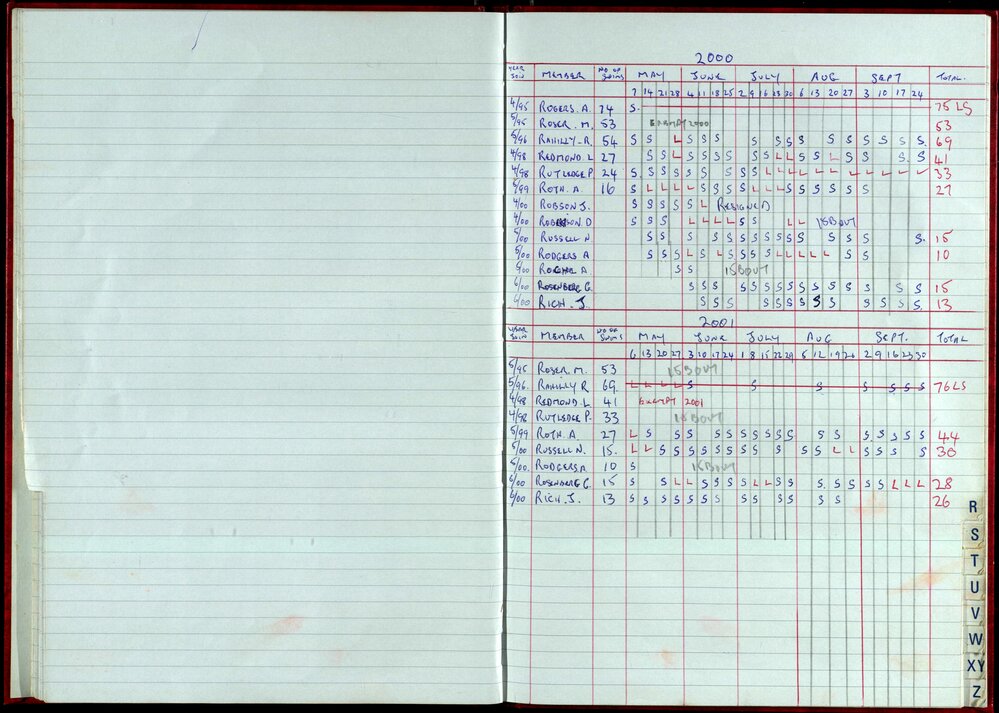 2000
YEAR JOIN MEMBER NO OF SWIMS MAY JUNE JULY AUG SEPT TOTAL.
7 14 21 28 4 11 18 25 2 9 16 23 30 6 13 20 27 3 10 17 24
4/95 ROGERS. A. 74 S. 75 LS
5/95 ROSER. M. 53 EXEMPT 2000 53
5/96 RAHILLY. R. 54 S S L S S S S S S S S S S S S S S S. 69
4/98 REDMOND. L 27 S S L S S S S S S L L S S L S S S. S 41
4/98 RUTLEDGE P. 24 S. S S S S S S S S L L L L L L L L L L L 33
5/99 ROTH. A. 16 S L L L L S S S S L L L S S S S S S S 27
4/00 ROBSON J. S S S S S L RESIGNED
4/00 D S S S L L L L S S L L 15BOUT
5/00 RUSSELL N S S S S S S S S S S S S S S S S. 15
5/00 RODGERS A S S S L S L S S S L L L L L S S 10
A. S S 15BOUT
6/00 ROSENBERG G. S S S S S S S S S S S S S S S S S 15
6/00 RICH. J. S S S S S S S S S S S S S S S. 13
2001
YEAR JOIN MEMBER NO OF SWIMS MAY JUNE JULY AUG SEPT. TOTAL
6 13 20 27 3 10 17 24 1 8 15 22 29 5 12 19 26 2 9 16 23 30
5/95 ROSER. M. 53 15BOUT
5/96. RAHILLY R 69. L L L L S S S S S S S 76 LS
4/98 REDMOND. L 41 EXEMPT 2001
4/98 RUTLEDGE P. 33 15BOUT
5/99 ROTH. A. 27 L S S S S S S S S S S S S S. S S S S 44
5/00 RUSSELL N. 15. L L S S S S S S S S S S S S L L S S S S 30
5/00 RODGERS A. 10 S 15BOUT
6/00 ROSENBERG G. 15 S S L L S S S S L L S S S S S S S S L L L 28
6/00 RICH. J. 13 S S S S S S S S S S S S S S 26
R
S
T
U
V
W
XY
Z